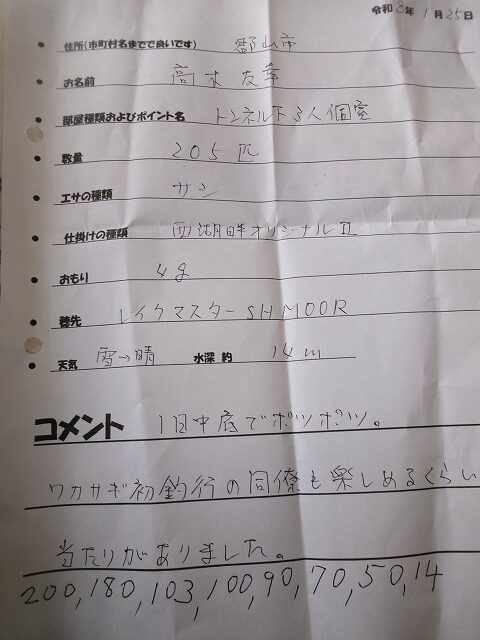 令和8年1月25日
住所(市町村名までで良いです) 郡山市
お名前 高木 友幸
部屋種類およびポイント名 トンネル下3人個室
数量 205匹
エサの種類 サシ
仕掛けの種類 西湖畔オリジナルⅡ
おもり 4g
穂先 レイクマスターSH M00R
天気 雪→晴 水深 約 14m
コメント 1日中底でポツポツ。
ワカサギ初釣行の同僚も楽しめるくらい
当たりがありました。
200,180,103,100,90,70,50,14